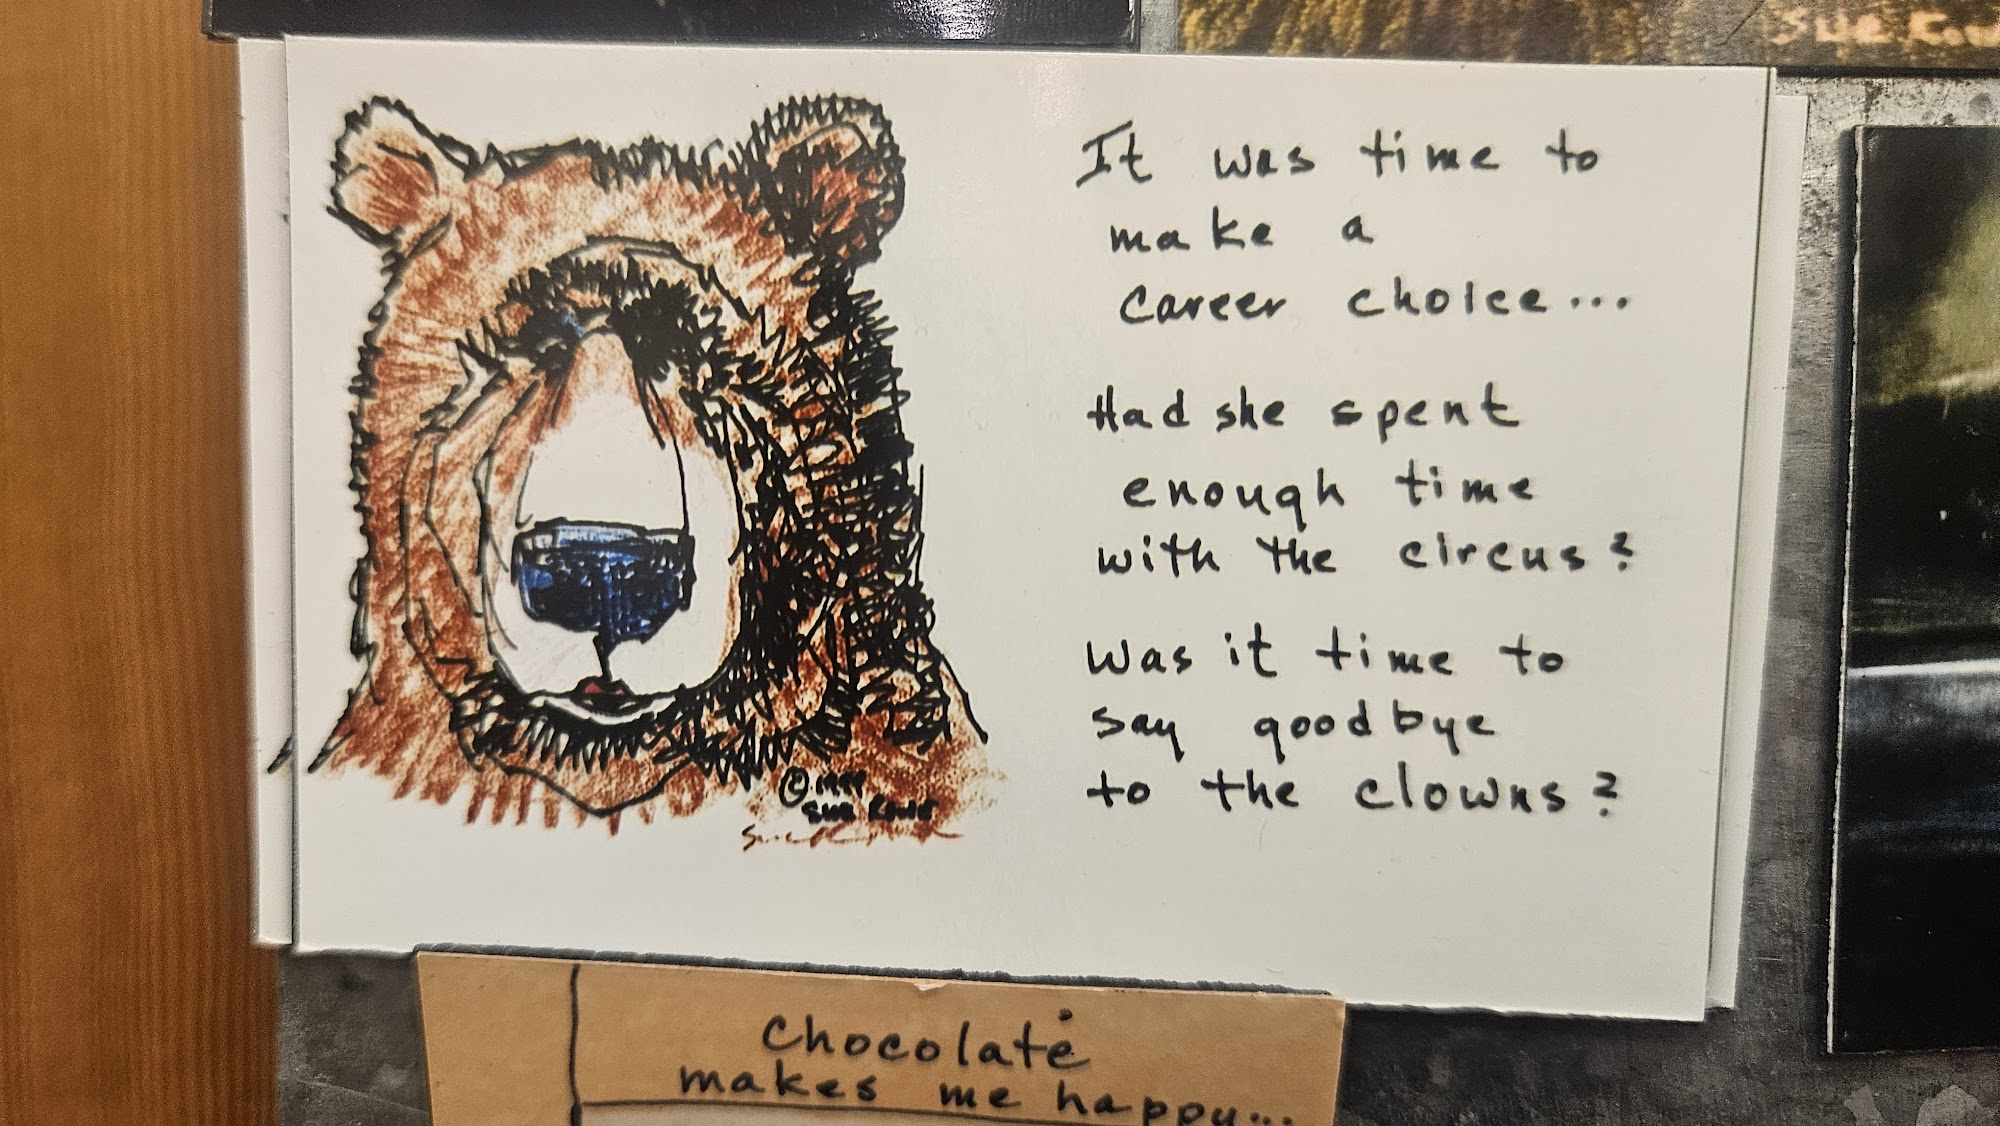 It was time to
make a
career choice...
Had she spent
enough time
with the circus?
Was it time to
say goodbye
to the clowns?
© 1999
Sue
Sue
Chocolate
makes me happy...